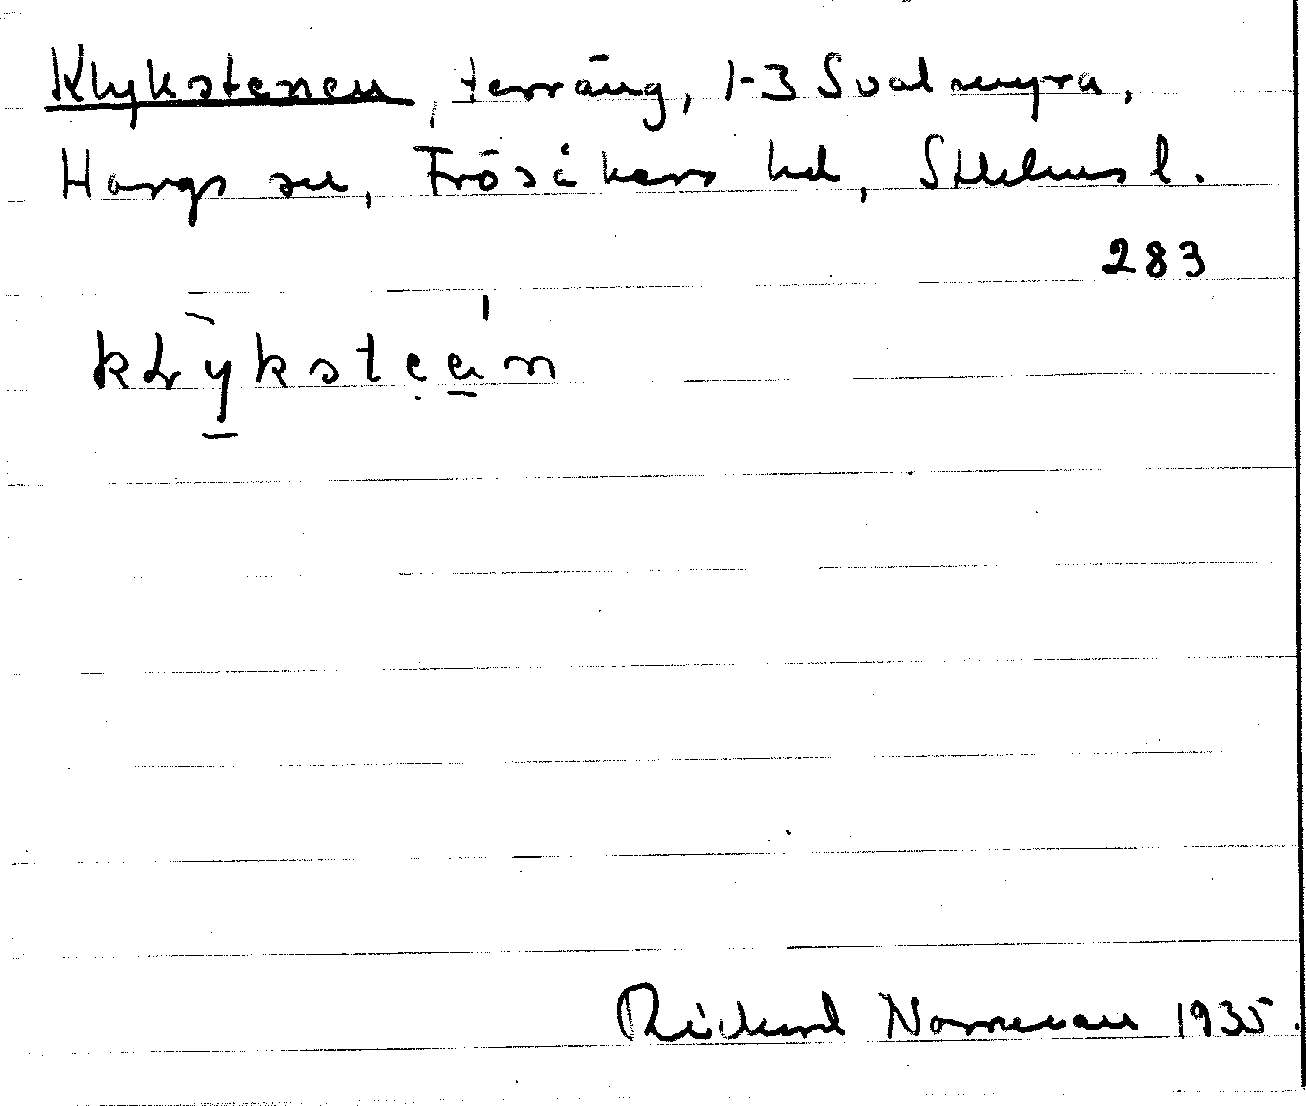 Klykstenen, terräng, 1-3 Svalmyra,
Hargs sn, Frösåkers hd, Sthlms l.
283
Rickard Norrman 1935.